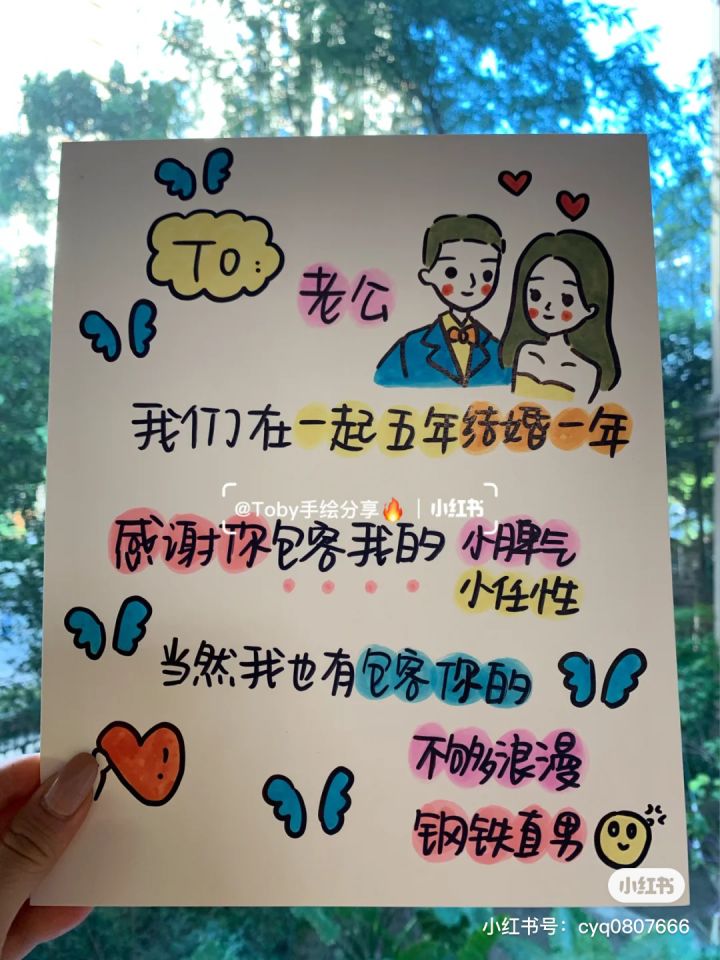 TO:
老公
我们在一起五年结婚一年
@Toby手绘分享🔥 | 小红书
感谢你包容我的 小脾气
小任性
当然我也有包容你的
不够浪漫
钢铁直男
小红书
小红书号：cyq0807666